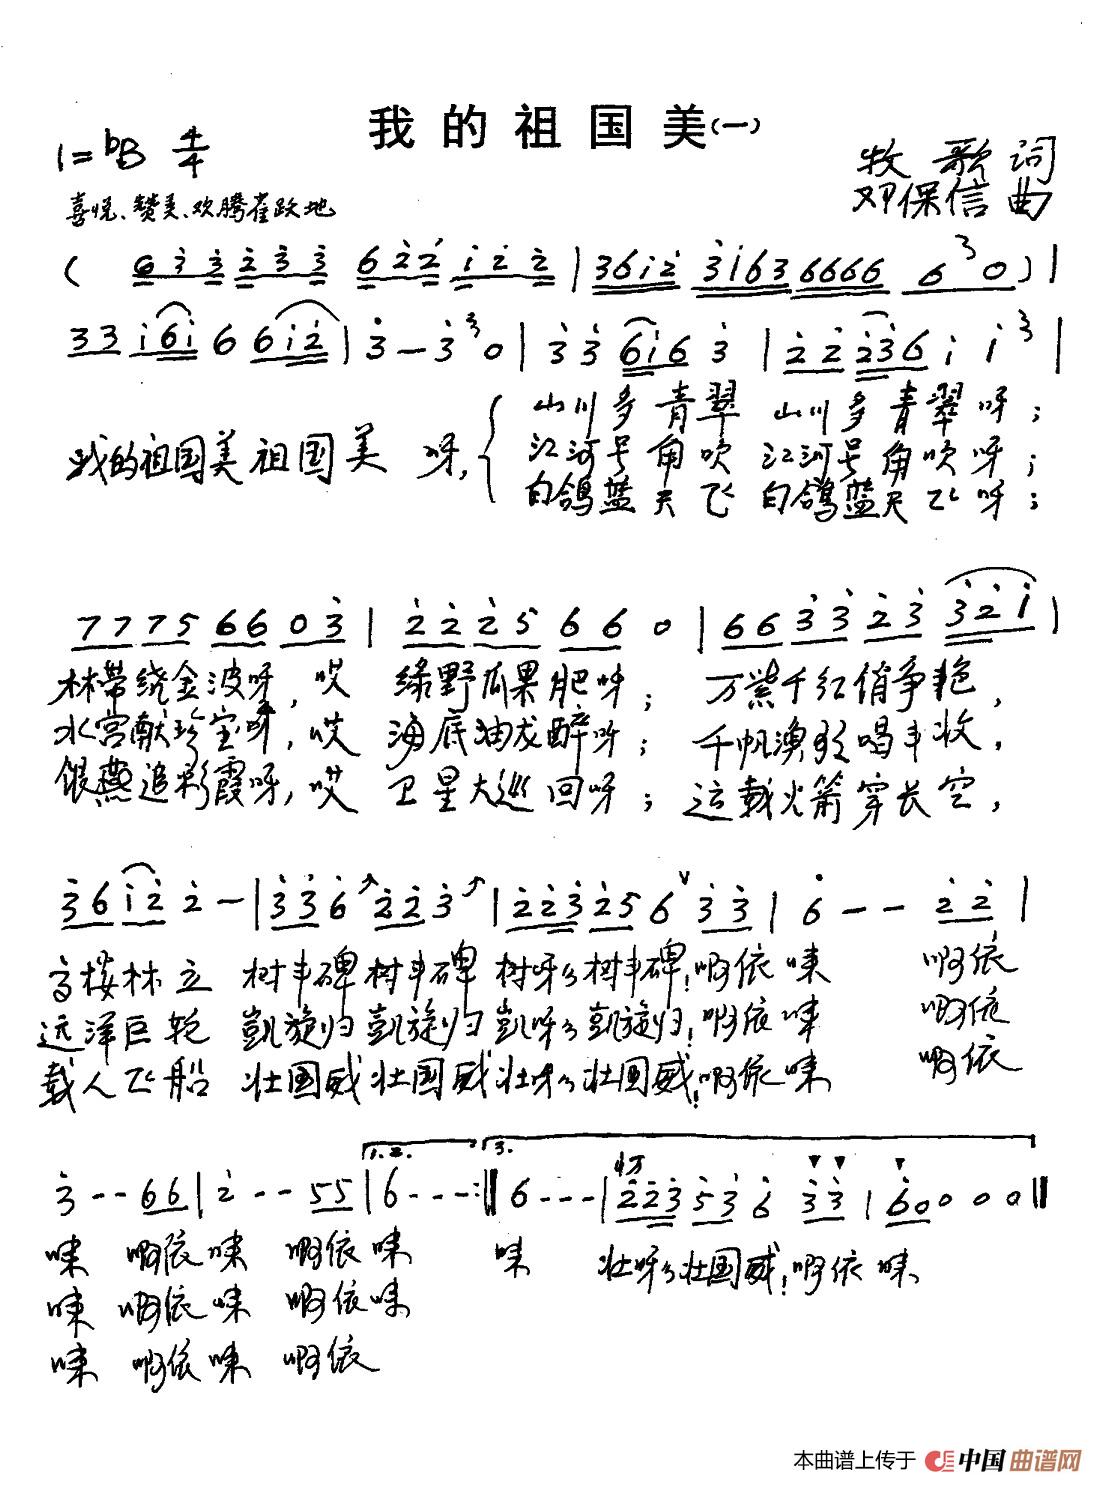 我的祖国美(一)
1=bB 4/4
牧歌词
邓保信曲
喜悦、赞美、欢腾雀跃地
( 6 3 3 2 3 3 6 2 2 1 2 2 | 3 6 1 2 3 1 6 3 6 6 6 6 6 3 0 ) |
3 3 1 6 1 6 6 1 2 | 3 — 3 3 0 | 3 3 6 1 6 3 | 2 2 2 3 6 1 1 3 |
山川多青翠 山川多青翠呀;
我的祖国美祖国美 呀, 江河号角吹 江河号角吹呀;
白鸽蓝天飞 白鸽蓝天飞呀;
7 7 7 5 6 6 0 3 | 2 2 2 5 6 6 0 | 6 6 3 3 2 3 3 2 1 |
林带绕金波呀, 哎 绿野瓜果肥呀; 万紫千红俏争艳,
水宫献珍宝呀, 哎 海底油龙醉呀; 千帆渔歌唱丰收,
银燕追彩霞呀, 哎 卫星大巡回呀; 运载火箭穿长空,
3 6 1 2 2 — | 3 3 6 2 2 3 | 2 2 3 2 5 6 ∨ 3 3 | 6 — — 2 2 |
高楼林立 树丰碑 树丰碑 树呀么树丰碑! 啊依 咪 啊依
远洋巨轮 凯旋归 凯旋归 凯呀么凯旋归! 啊依 咪 啊依
载人飞船 壮国威 壮国威 壮呀么壮国威! 啊依 咪 啊依
1.2. 3.
3 - - 6 6 | 2 - - 5 5 | 6 - - - :‖ 6 - - - | 2 2 3 5 3 6 3 3 | 6 0 0 0 0 ‖
咪 啊依 咪 啊依 咪 咪 壮呀么壮国威! 啊依 咪
咪 啊依 咪 啊依 咪
咪 啊依 咪 啊依
本曲谱上传于 中国曲谱网